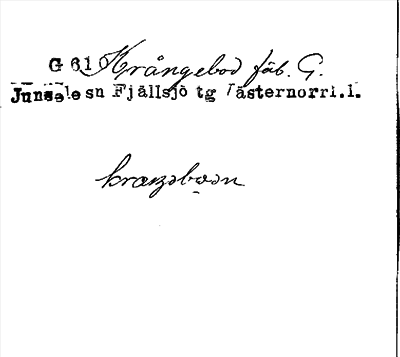 G 61 Krångebod fäb. G.
Junsele sn Fjällsjö tg Västernorrl.l.
kraŋəbɷdn